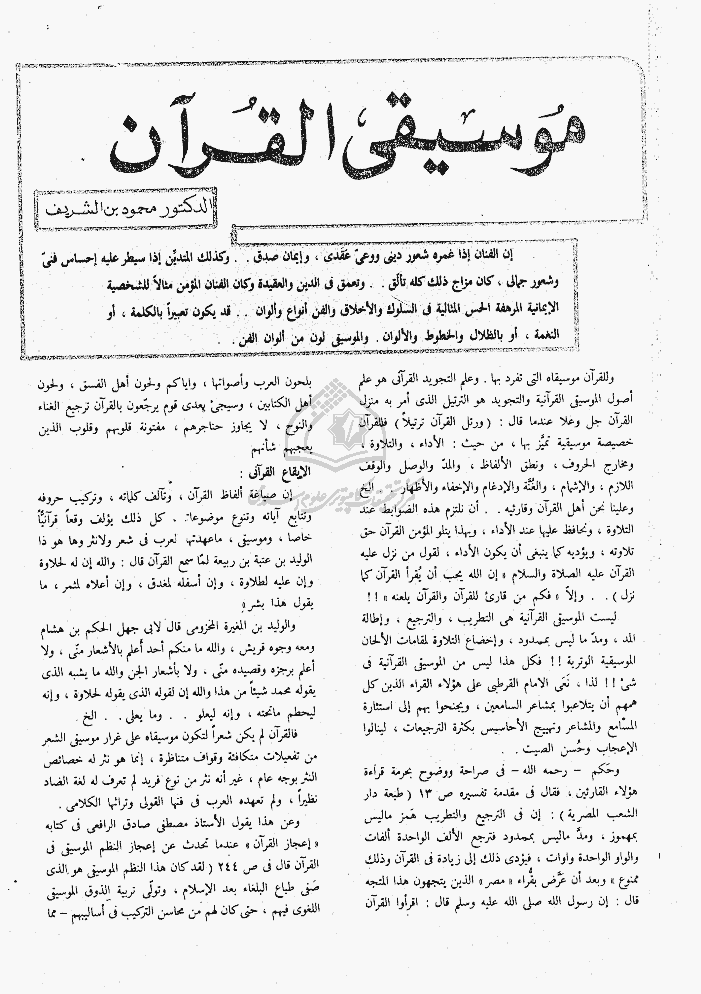 موسيقى القرآن
الدكتور محمود بن الشريف
إن الفنان إذا غمره شعور دينى ووعىٌ عَقَدى ، وإيمان صدق . . وكذلك المتديِّن إذا سيطر عليه إحساس فنىّ
وشعور جمالى ، كان مزاج ذلك كله تألق . . وتعمق فى الدين والعقيدة وكان الفنان المؤمن مثالاً للشخصية
الإيمانية المرهفة الحس المثالية فى السلوك والأخلاق والفن أنواع وألوان . . قد يكون تعبيراً بالكلمة ، أو
النغمة ، أو بالظلال والخطوط والألوان . والموسيقى لون من ألوان الفن . .
وللقرآن موسيقاه التى تفرد بها . وعلم التجويد القرآنى هو علم
أصول الموسيقى القرآنية والتجويد هو الترتيل الذى أمر به منزل
القرآن جل وعلا عندما قال : ( ورتل القرآن ترتيلاً ) فللقرآن
خصيصة موسيقية تميَّز بها ، من حيث : الأداء ، والتلاوة ،
ومخارج الحروف ، ونطق الألفاظ ، والمدّ والوصل والوقف
اللازم ، والإشمام ، والغُنَّة والإدغام والإخفاء والأظهار . . الخ
وعلينا نحن أهل القرآن وقارئيه . . أن نلتزم هذه الضوابط عند
التلاوة ، ونحافظ عليها عند الأداء ، وبهذا يتلو المؤمن القرآن حق
تلاوته ، ويؤديه كما ينبغى أن يكون الأداء ، لقول من نزل عليه
القرآن عليه الصلاة والسلام « إن الله يحب أن يُقرأ القرآن كما
نزل ) . . وإلاّ « فكم من قارئ للقرآن والقرآن يلعنه » ! !
ليست الموسيقى القرآنية هى التطريب ، والترجيع ، وإطالة
المد ، ومدّ ما ليس بممدود ، وإخضاع التلاوة لمقامات الألحان
الموسيقية الوترية ! ! فكل هذا ليس من الموسيقى القرآنية فى
شئ ! ! لذا ، نَعَى الامام القرطبى على هؤلاء القراء الذين كل
همهم أن يتلاعبوا بمشاعر السامعين ، ويجنحوا بهم إلى استثارة
المسّامع والمشاعر وتهييج الأحاسيس بكثرة الترجيعات ، لينالوا
الإعجاب وحُسن الصيت .
وحَكم – رحمه الله – فى صراحة ووضوح بحرمة قراءة
هؤلاء القارئين ، فقال فى مقدمة تفسيره ص ١٣ ( طبعة دار
الشعب المصرية ) : إن فى الترجيع والتطريب هَمز ماليس
بمهموز ، ومدّ ماليس بممدود فترجع الألف الواحدة ألفات
والواو الواحدة واوات ، فيؤدى ذلك إلى زيادة فى القرآن وذلك
ممنوع » وبعد أن عَرَّض بقُراء « مصر » الذين يتجهون هذا المتجه
قال : إن رسول الله صلى الله عليه وسلم قال : اقرأوا القرآن
بلحون العرب وأصواتها ، واياكم ولحون أهل الفسق ، ولحون
أهل الكتابين ، وسيجئ بعدى قوم يرجّعون بالقرآن ترجيع الغناء
والنوح ، لا يجاوز حناجرهم ، مفتونة قلوبهم وقلوب الذين
يعجبهم شأنهم
الإيقاع القرآنى :
إن صياغة ألفاظ القرآن ، وتآلف كلماته ، وتركيب حروفه
وتتابع آياته وتنوع موضوعاته . كل ذلك يؤلف وقعاً قرآنيًّا
خاصا ، وموسيقى ، ماعهدتها لعرب فى شعر ولانثر وها هو ذا
الوليد بن عتبة بن ربيعة لمّا سمع القرآن قال : والله إن له لحلاوة
وإن عليه لطلاوة ، وإن أسفله لمغدق ، وإن أعلاه لمثمر ، ما
يقول هذا بشر »
والوليد بن المغيرة المخزومى قال لابى جهل الحكم بن هشام
ومعه وجوه قريش ، والله ما منكم أحد أعلم بالأشعار منّى ، ولا
أعلم برجزه وقصيده منّى ، ولا بأشعار الجن والله ما يشبه الذى
يقوله محمد شيئاً من هذا والله إن لقوله الذى يقوله لحلاوة ، وإنه
ليحطم ماتحته ، وإنه ليعلو . . وما يعلى . . الخ .
فالقرآن لم يكن شعراً لتكون موسيقاه على غرار موسيقى الشعر
من تفعيلات متكافئة وقواف متناظرة ، إنما هو نثر له خصائص
النثر بوجه عام ، غير أنه نثر من نوع فريد لم تعرف له لغة الضاد
نظيراً ، ولم تعهده العرب فى فنها القولى وتراثها الكلامى .
وعن هذا يقول الأستاذ مصطفى صادق الرافعى فى كتابه
« إعجاز القرآن » عندما تحدث عن إعجاز النظم الموسيقى فى
القرآن قال فى ص ٢٤٤ ( لقد كان هذا النظم الموسيقى هو الذى
صَفى طباع البلغاء بعد الإسلام ، وتولّى تربية الذوق الموسيقى
اللغوى فيهم ، حتى كان لهم من محاسن التركيب فى أساليبهم – مما